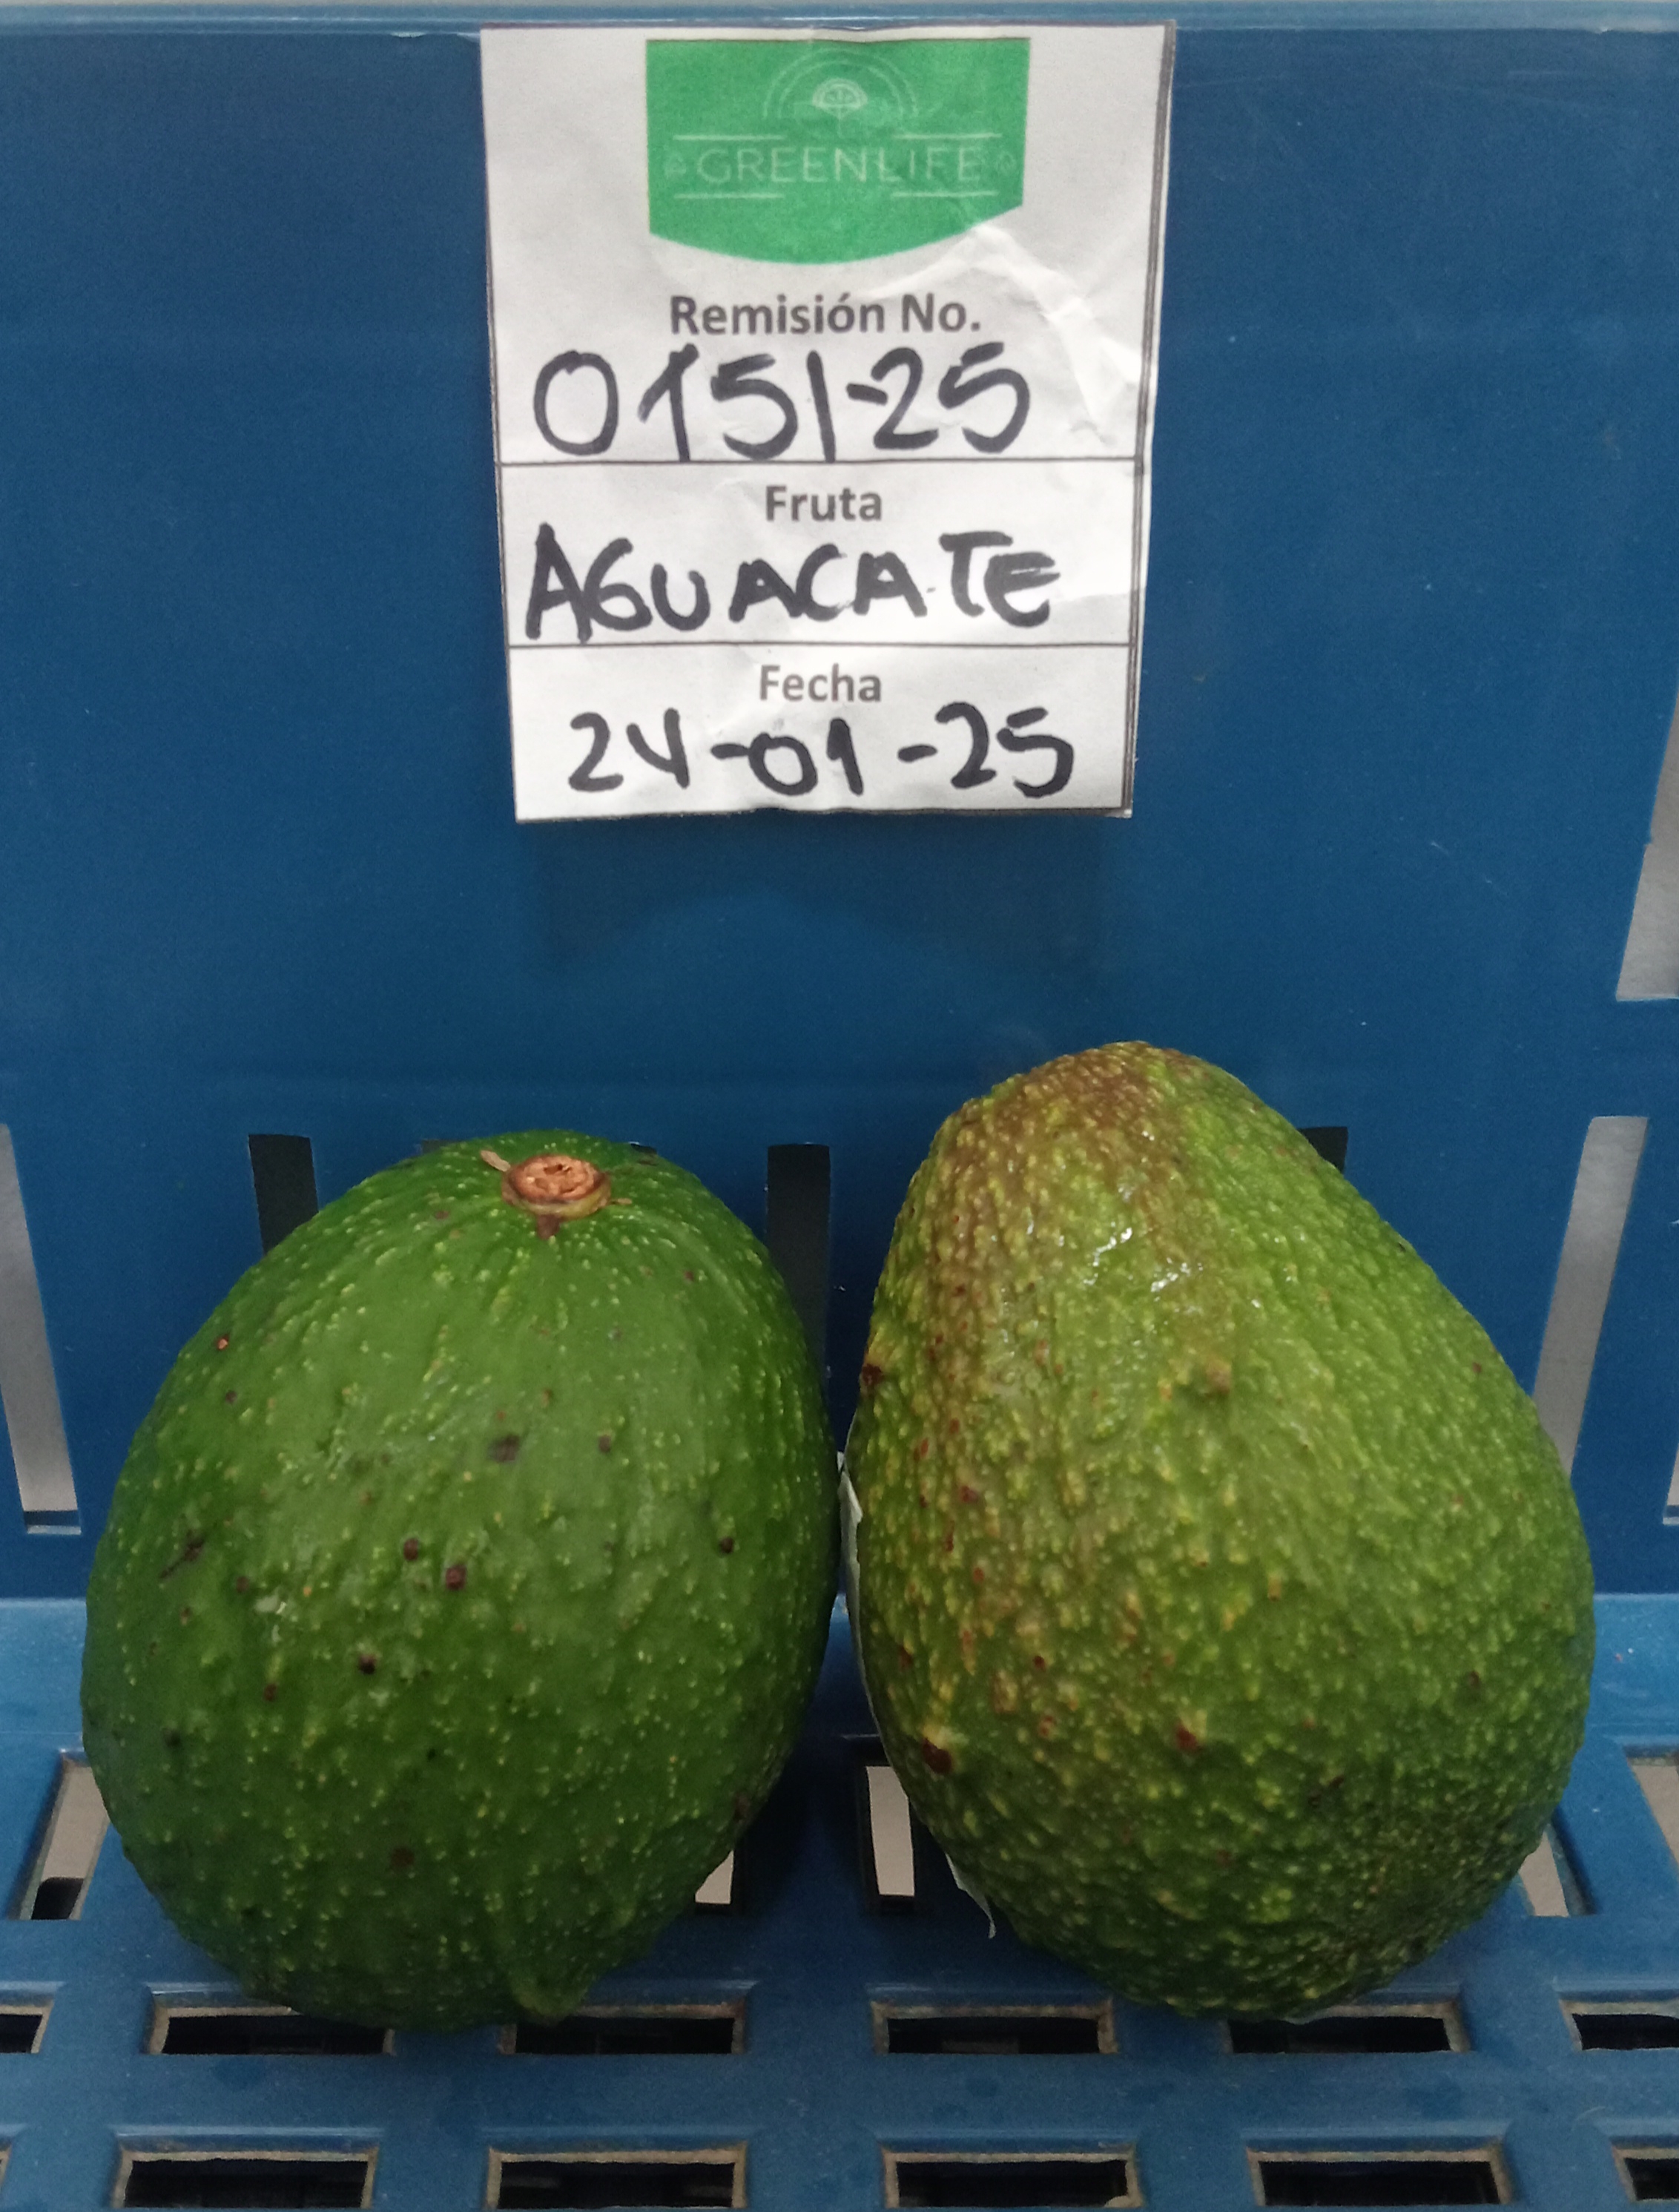 GREENLIFE
Remisión No.
0151-25
Fruta
AGUACATE
Fecha
24-01-25